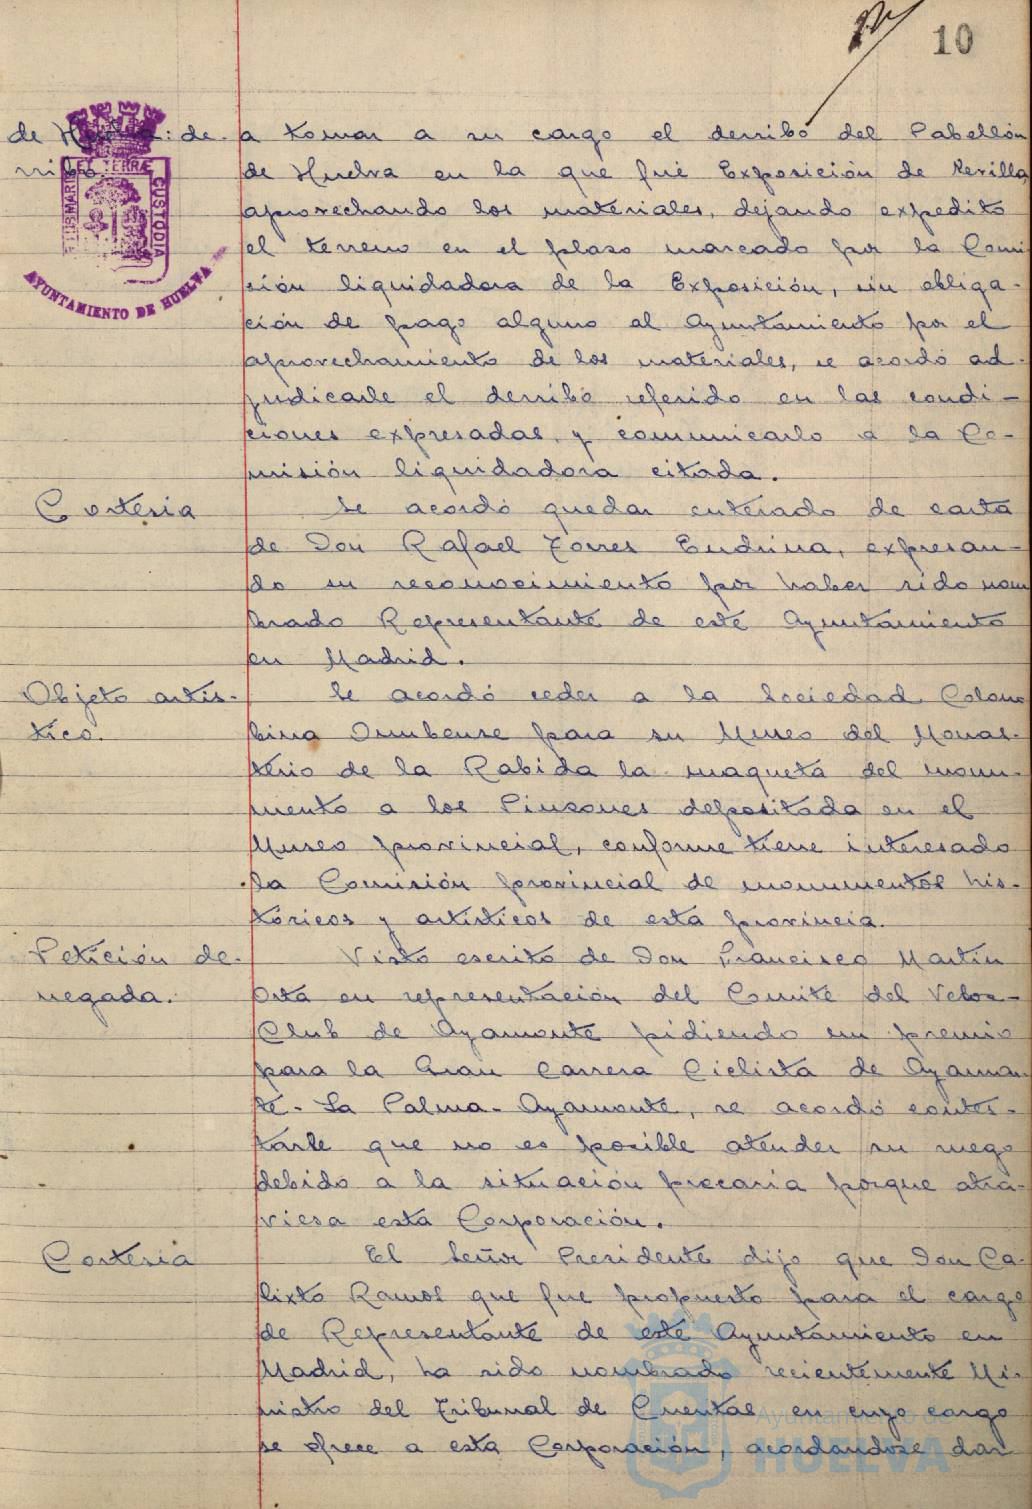 10
de Huelva: de-
rribo
PORTUS MARIS ET TERRÆ CUSTODIA
AYUNTAMIENTO DE HUELVA
a tomar a su cargo el derribo del Pabellón
de Huelva en la que fué Exposición de Sevilla
aprovechando los materiales, dejando expedito
el terreno en el plazo marcado por la Comi
sión liquidadora de la Exposición, sin obliga-
ción de pago alguno al Ayuntamiento por el
aprovechamiento de los materiales, se acordó ad-
judicarle el derribo referido en las condi-
ciones expresadas y comunicarlo a la Co-
misión liquidadora citada.
Cortesia
Se acordó quedar enterado de carta
de Don Rafael Torres Endrina, expresan-
do su reconocimiento por haber sido nom
brado Representante de este Ayuntamiento
en Madrid.
Objeto artís-
tico.
Se acordó ceder a la Sociedad Colom
bina Onubense para su Museo del Monas-
terio de la Rabida la maqueta del monu-
mento a los Pinzones depositada en el
Museo provincial, conforme tiene interesado
la Comisión provincial de monumentos his-
tóricos y artísticos de esta provincia.
Petición de-
negada.
Visto escrito de Don Francisco Martín
Orta en representación del Comité del Veloz-
Club de Ayamonte pidiendo un premio
para la Gran Carrera Ciclista de Ayamon
te-La Palma-Ayamonte, se acordó contes-
tarle que no es posible atender su ruego
debido a la situación precaria porque atra-
viesa esta Corporación.
Cortesia
El Señor Presidente dijo que Don Ca-
lixto Ramos que fue propuesto para el cargo
de Representante de este Ayuntamiento en
Madrid, ha sido nombrado recientemente Mi-
nistro del Tribunal de Cuentas en cuyo cargo
se ofrece a esta Corporación, acordandose dar
Ayuntamiento de
HUELVA